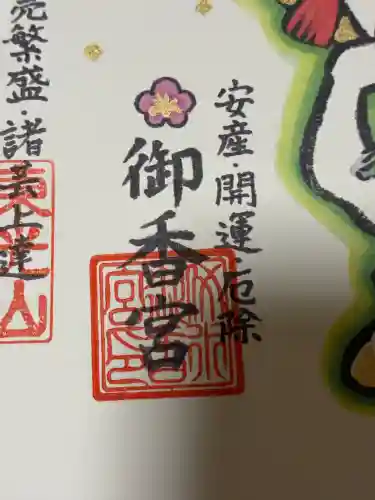 安産・開運・厄除
御香宮
売繁盛・諸芸上達